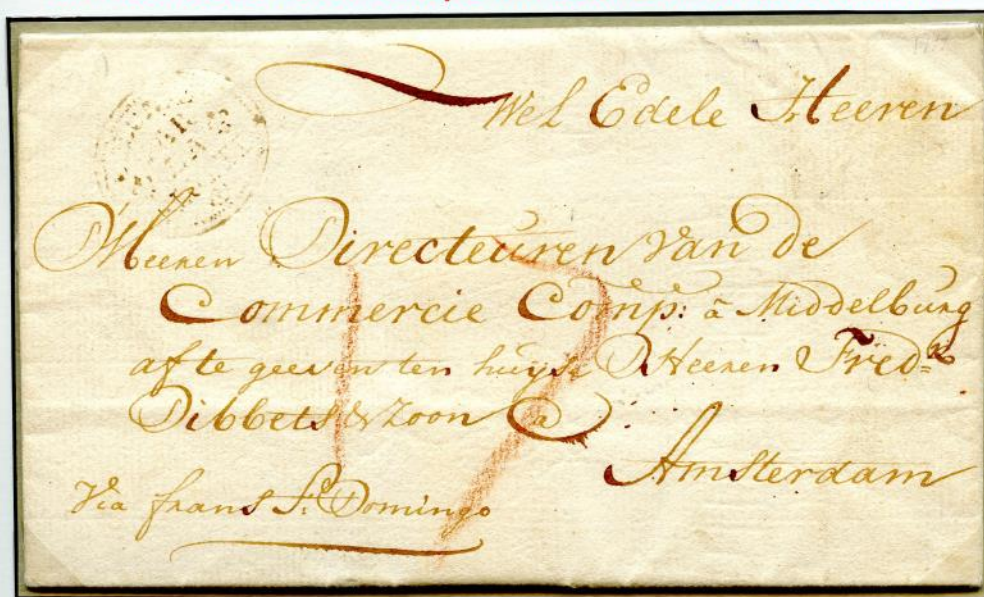 Wel Edele Heeren
D'Heeren Directeuren van de
Commercie Comp: à Middelburg
af te geeven ten huyse D'Heeren Fredk
Dibbets & Zoon à
Amsterdam
Via frans St. Domingo
17